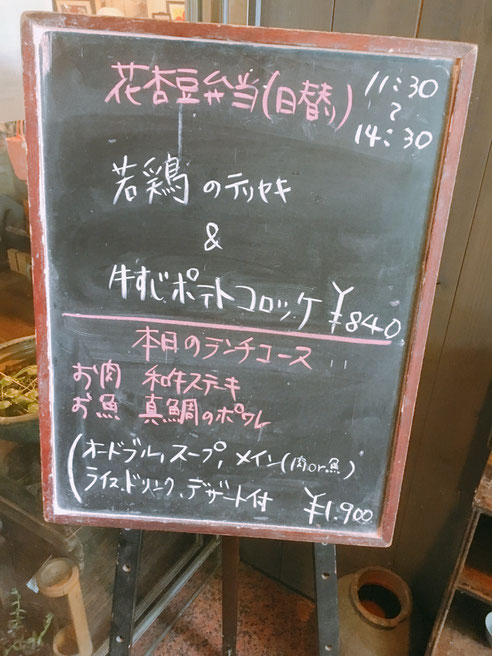 花杏豆弁当(日替り) 11:30
〜
14:30
若鶏のテリヤキ
&
牛すじポテトコロッケ ¥840
本日のランチコース
お肉 和牛ステーキ
お魚 真鯛のポワレ
(オードブル,スープ,メイン(肉or魚)
ライス、ドリンク、デザート付 ¥1.900